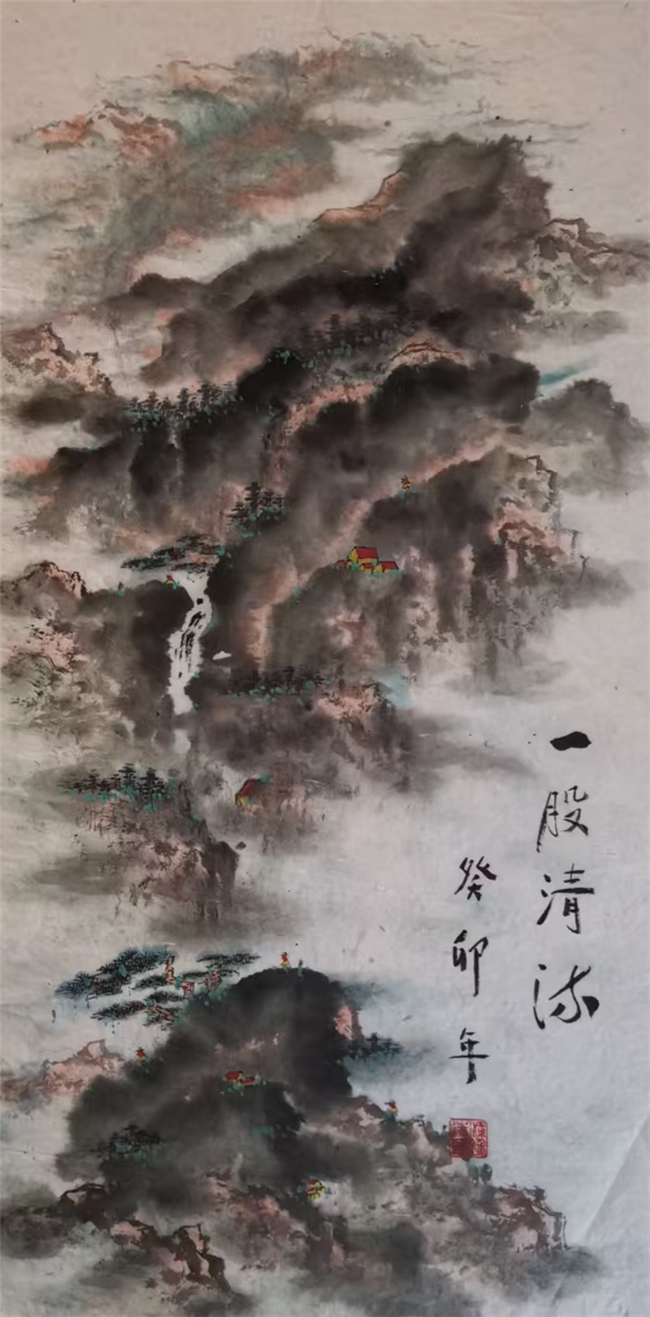 一股清流
癸卯年